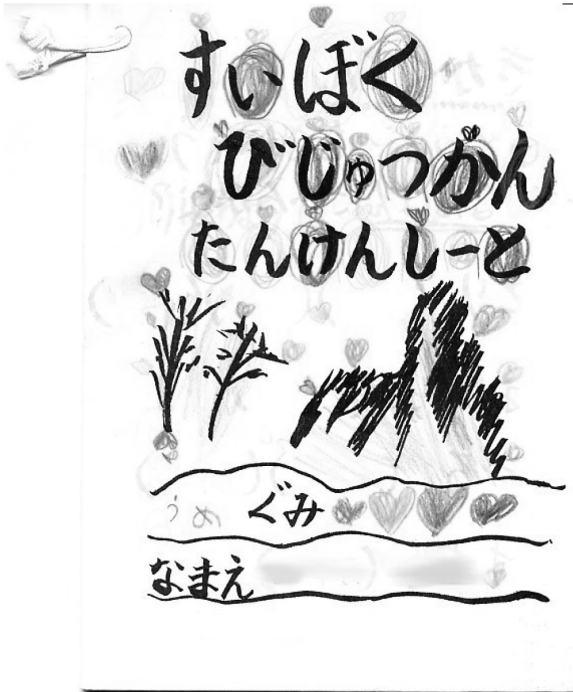 すいぼく
びじゅつかん
たんけんしーと
うめ ぐみ
なまえ